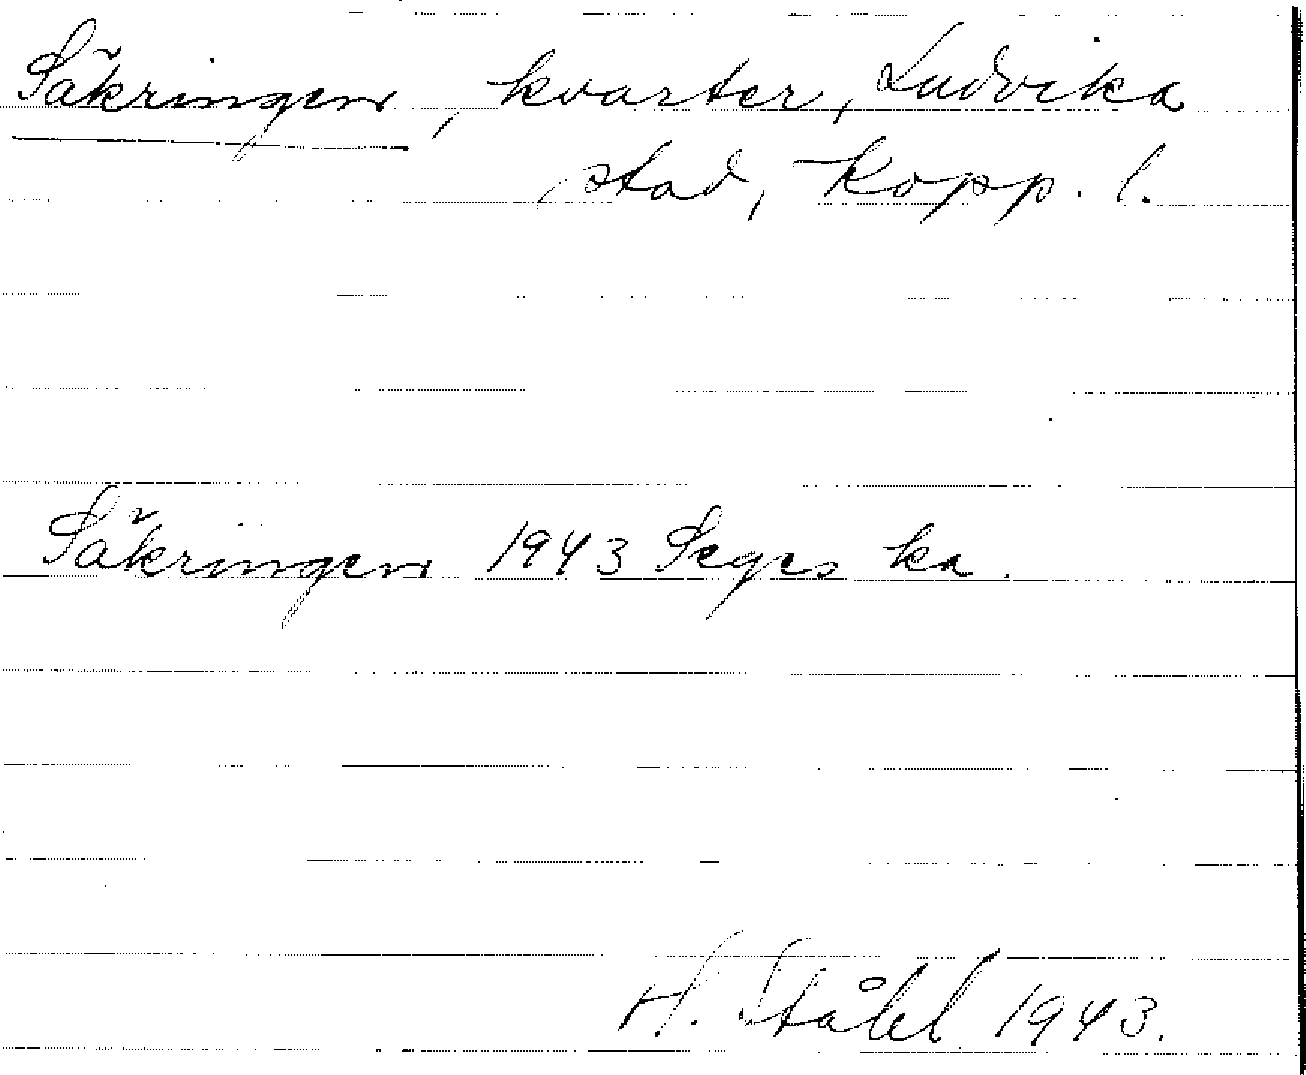 Säkringen, kvarter, Ludvika
stad, Kopp. l.
Säkringen 1943 Seges ka.
H. Ståhl 1943.